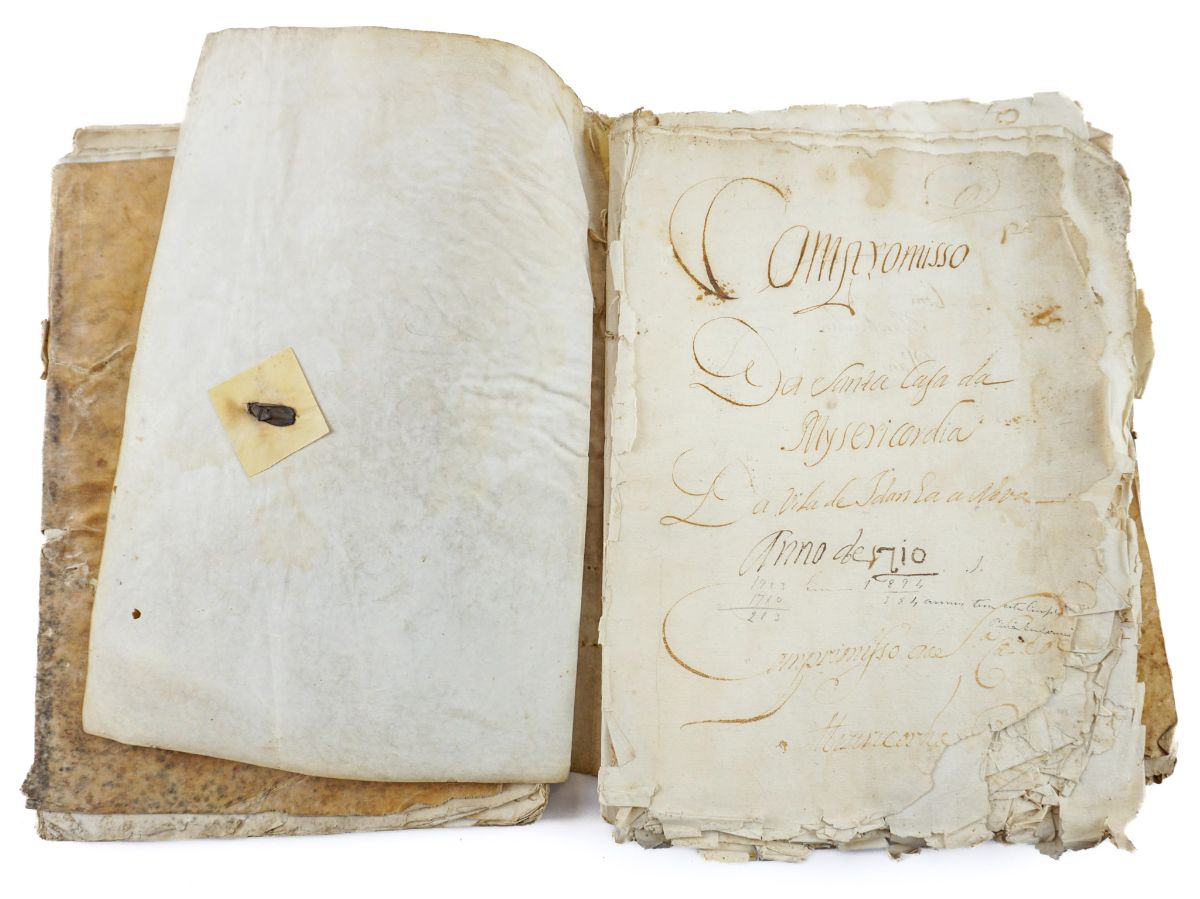 Compromisso
Da Santa Casa da
Mysericordia
Da Vila de Idanha a Nova
Anno de 1710
1923
1710
213
1894
184 annos
Comprimisso da S
Mizericordia